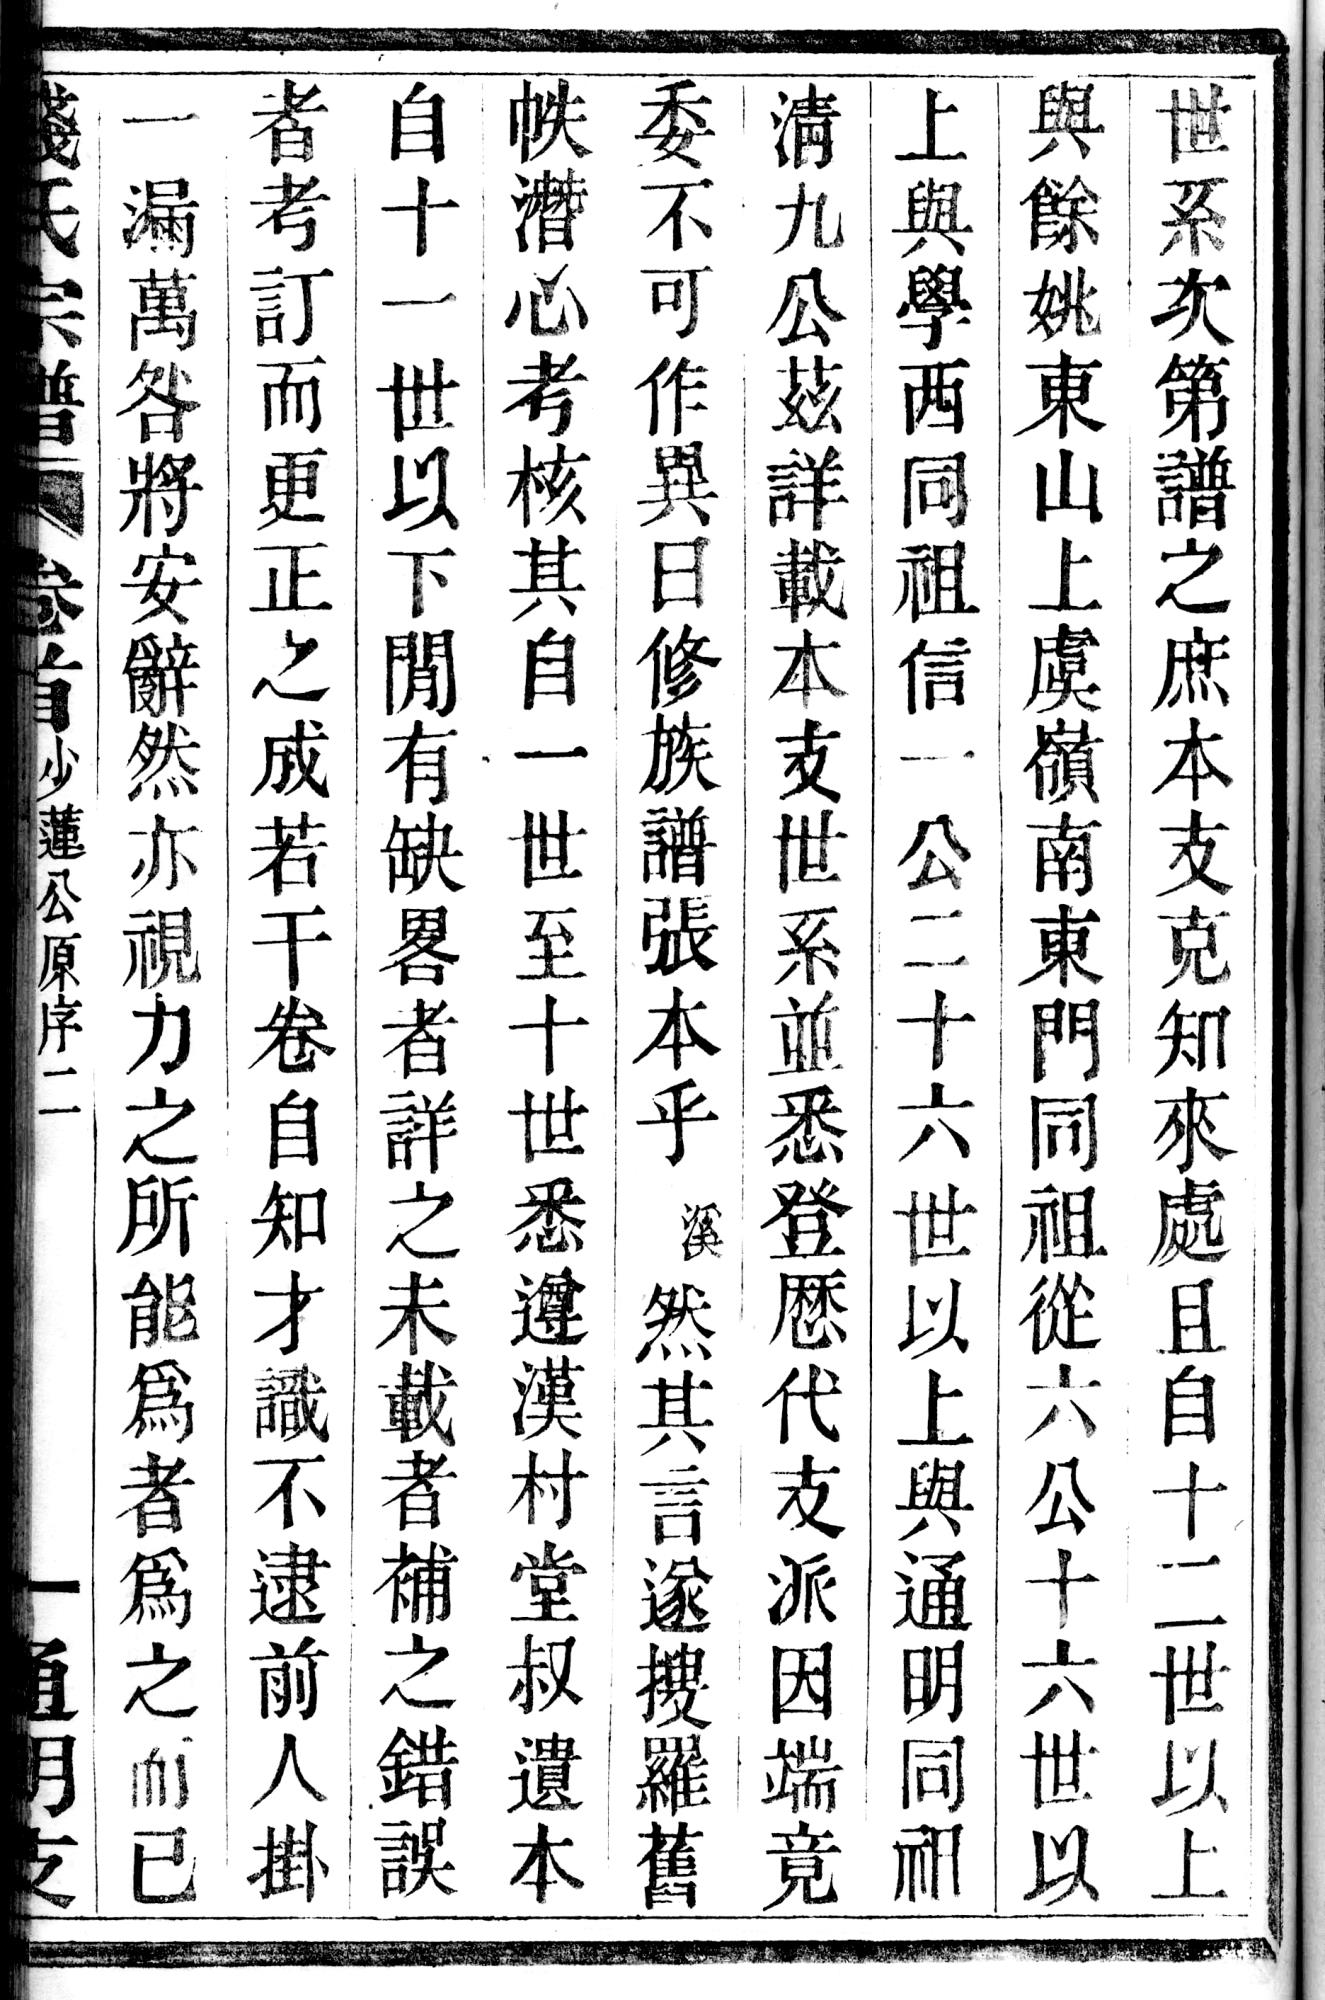 世系次第譜之庶本支克知來處且自十二世以上
與餘姚東山上虞嶺南東門同祖從六公十六世以
上與學西同祖信一公二十六世以上與通明同祖
淸九公茲詳載本支世系並悉登歷代支派因端竟
委不可作異日修族譜張本乎溪然其言遂搜羅舊
帙濳心考核其自一世至十世悉遵漢村堂叔遺本
自十一世以下閒有缺畧者詳之未載者補之錯誤
者考訂而更正之成若干卷自知才識不逮前人掛
一漏萬咎將安辭然亦視力之所能爲者爲之而已
錢氏宗譜 卷首 少蓮公原序二 一 通明支